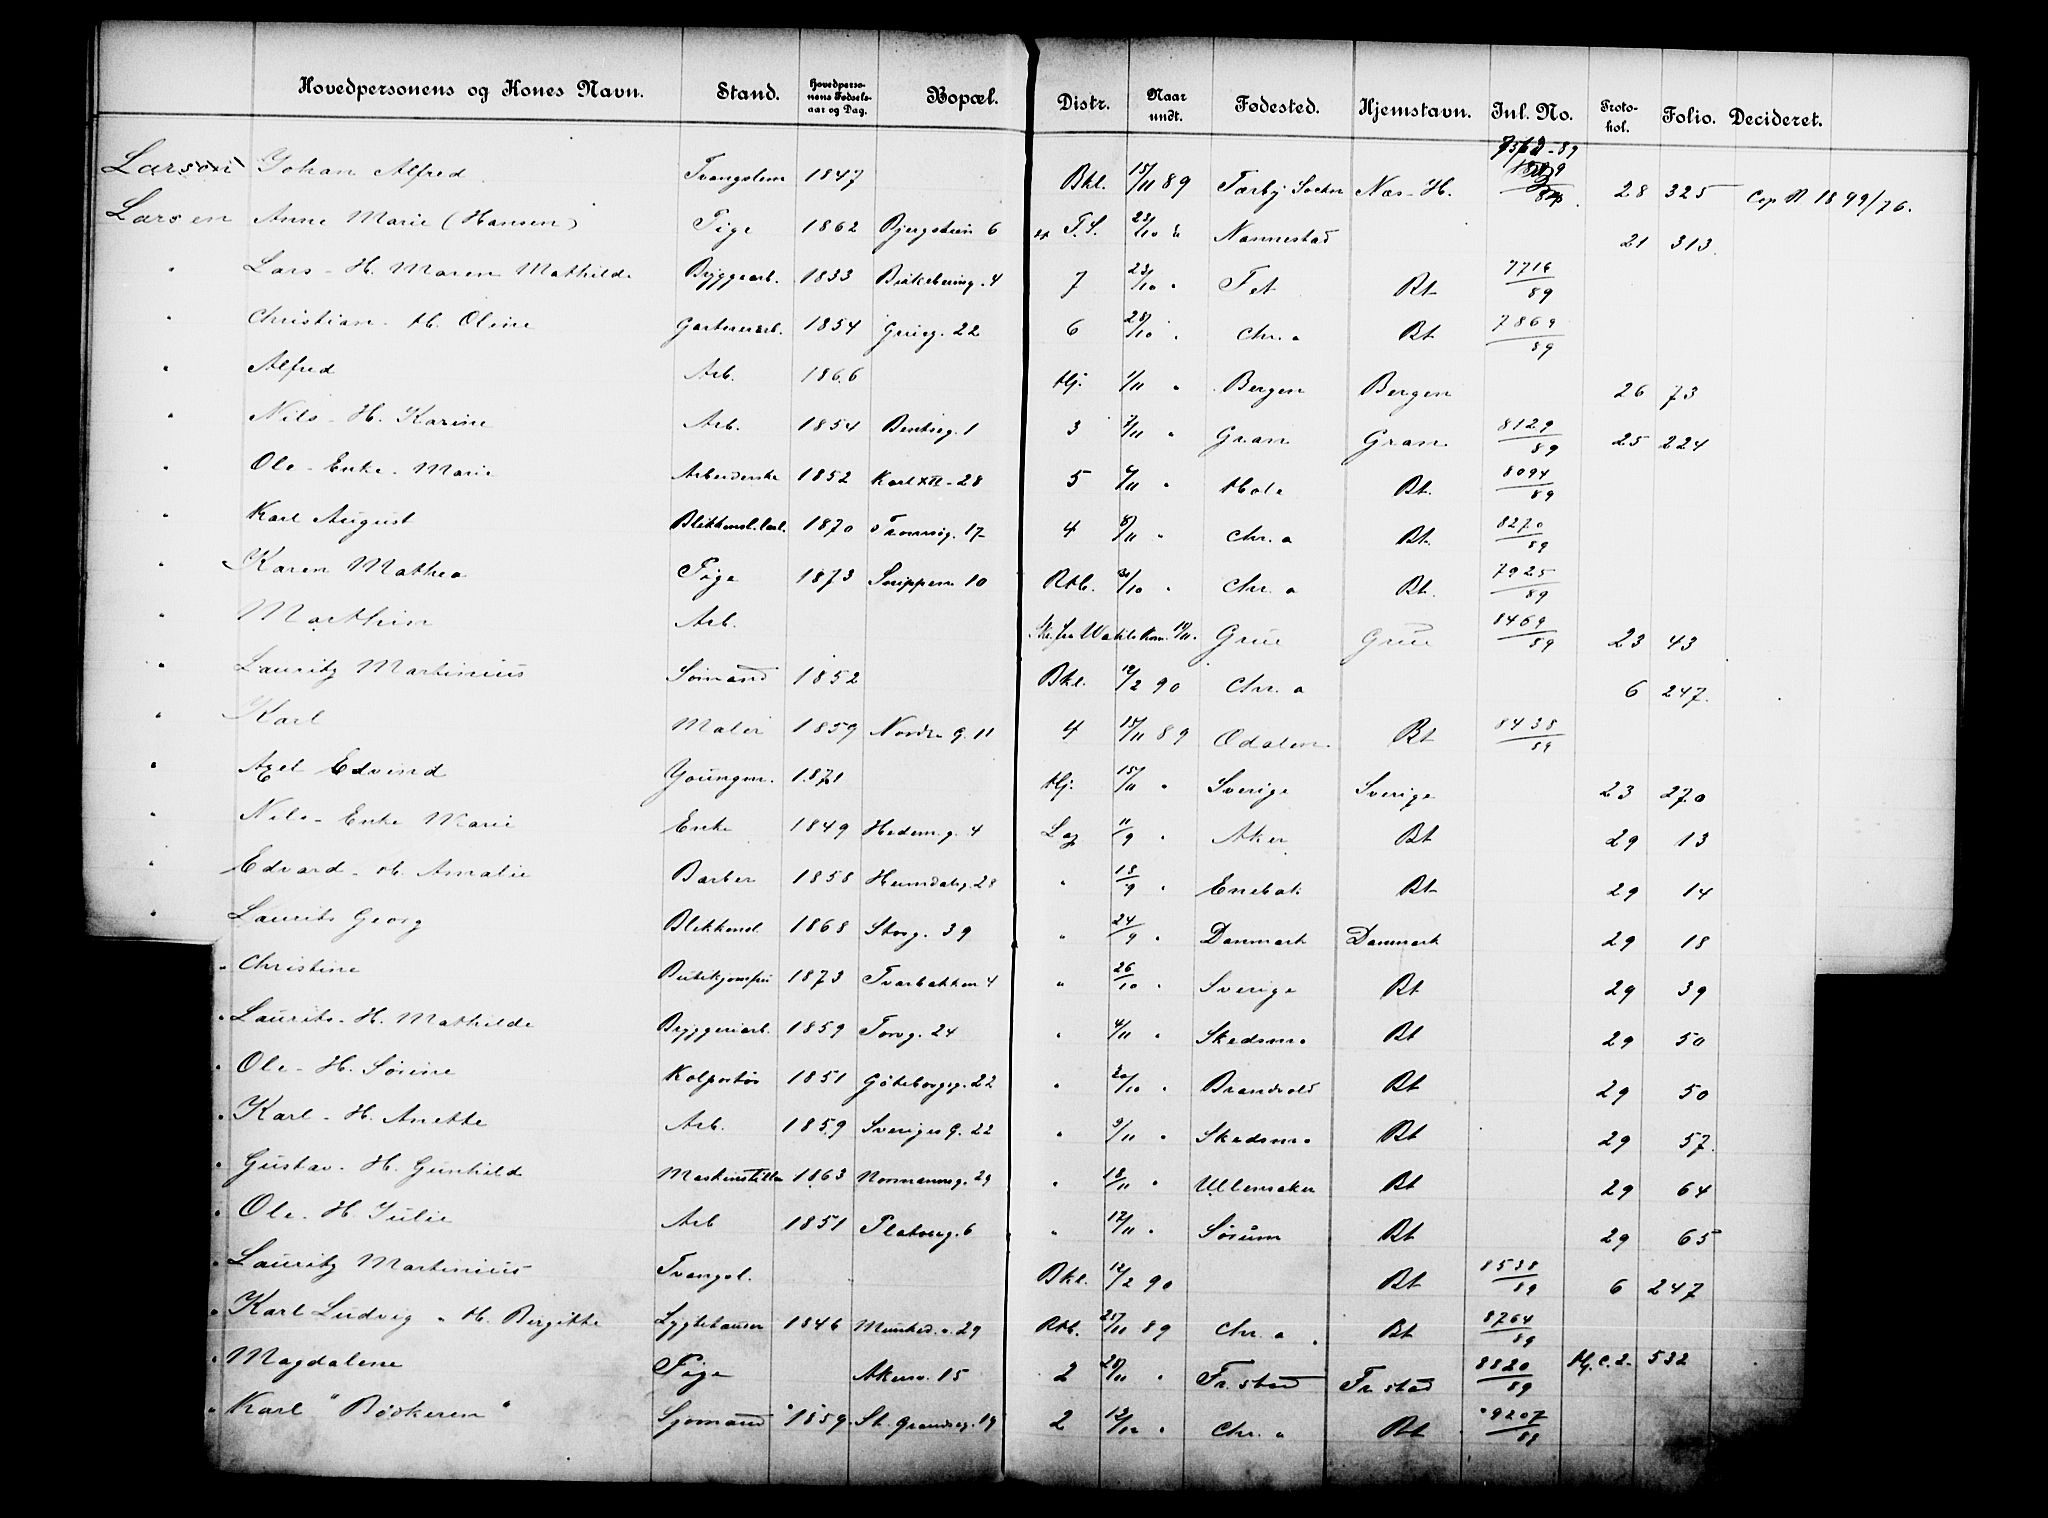 Hovedpersonens og Kones Navn. Stand. Hovedpersonens Fødselsaar og Dag. Bopæl. Distr. Naar undt. Fødested. Hjemstavn. Jnl. No. Protokol. Folio. Decideret.
Larson Johan Alfred Tvangslem 1847 Bkl. 15/11 89 Tarby Socken Næs-H. 7562-89 28 325 Cop R 1899/76.
Larsen Anne Marie (Hansen) Pige 1862 Bjergstien 6 T.S. 23/10 Nannestad 21 313.
" Lars - H. Maren Mathilde Byggearb. 1833 Birkebeinerg. 4 7 23/10 " Fet Bt 7716/89
" Christian - H. Oline Gartnerarb. 1854 Grüg. 22 6 28/10 " Chr.a Bt 7869/89
" Alfred Arb. 1866 Hj. 1/11 " Bergen Bergen 26 73
" Nils - H. Karine Arb. 1854 Bentseg. 1 3 7/11 " Gran Gran 8129/89 25 224
" Ole - Enke - Marie Arbeiderske 1852 Karl XII - 28 5 6/11 " Hole Bt. 8094/89
" Karl August Blikkensl. lærl. 1870 Tromsøg. 17 4 8/11 " Chr. a Bt. 8270/89
" Karen Mathea Pige 1873 Snippen 10 Rtb. 30/10 " Chr. a Bt. 7925/89
" Marthin Arb. Skr. fra Grue Grue 8469/89 23 43
" Lauritz Martinius Sømand 1852 Bkl. 12/2 90 Chr. a 6 247.
" Karl Maler 1859 Nordre G. 11 4 15/11 89 Odalen Bt 8438/89
" Axel Edvind Youngm. 1871 Hj. 15/11 " Sverige Sverige 23 270
" Nils - Enke Marie Enke 1849 Hedem.g. 4 Lag 11/9 " Aker Bt 29 13
" Edvard - H. Amalie Barber 1858 Heimdalsg. 28 " 18/9 " Enebak Bt 29 14
" Laurits Georg Blikkensl. 1868 Storg. 39 " 24/9 " Danmark Danmark 29 18
" Christine Butikjomfru 1873 Tværbakken 4 " 26/10 " Sverige Bt 29 39
" Laurits - H. Mathilde Bryggeriarb. 1859 Torvg. 24 " 4/11 " Skedsmo Bt 29 50
" Ole - H. Sørine Kolportør 1851 Göteborgsg. 22 " 20/10 " Brandvold Bt 29 50
" Karl - H. Anette Arb. 1859 Sveriges G. 22 " 9/11 " Skedsmo Bt 29 57.
" Gustav - H. Gunhild Maskinstiller 1863 Normannsg. 29 " 18/11 " Ullensaker Bt 29 64
" Ole - H. Julie Arb 1851 Platoug. 6 " 12/11 " Sørum Bt 29 65
" Lauritz Martinius Tvangsl. Bkl. 12/2 90 Bt 8538/89 6 247
" Karl Ludvig " H. Birgitte Lygtetænder 1846 Munked.v. 29 Rtb. 25/11 89 Chr. a Bt 8764/89
" Magdalene Pige Akersv. 15 2 28/11 " Fr.stad Fr.stad 8820/89 Hj. C. 2. 532
" Karl "Bödkeren" Sjømand 1859 St. Grændseg. 19 2 12/12 " Chr. a Bt 9207/89